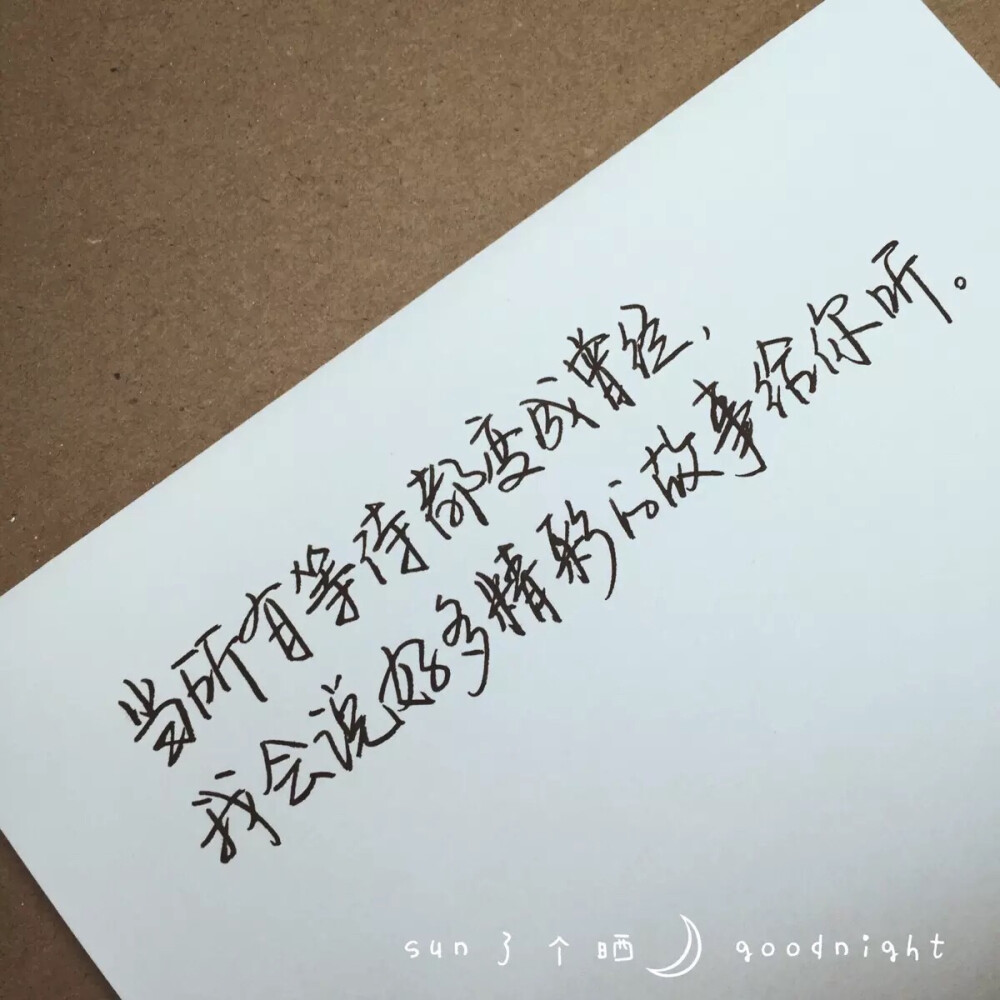 当所有等待都变成曾经，
我会说好多精彩的故事给你听。
sun了个晒 goodnight